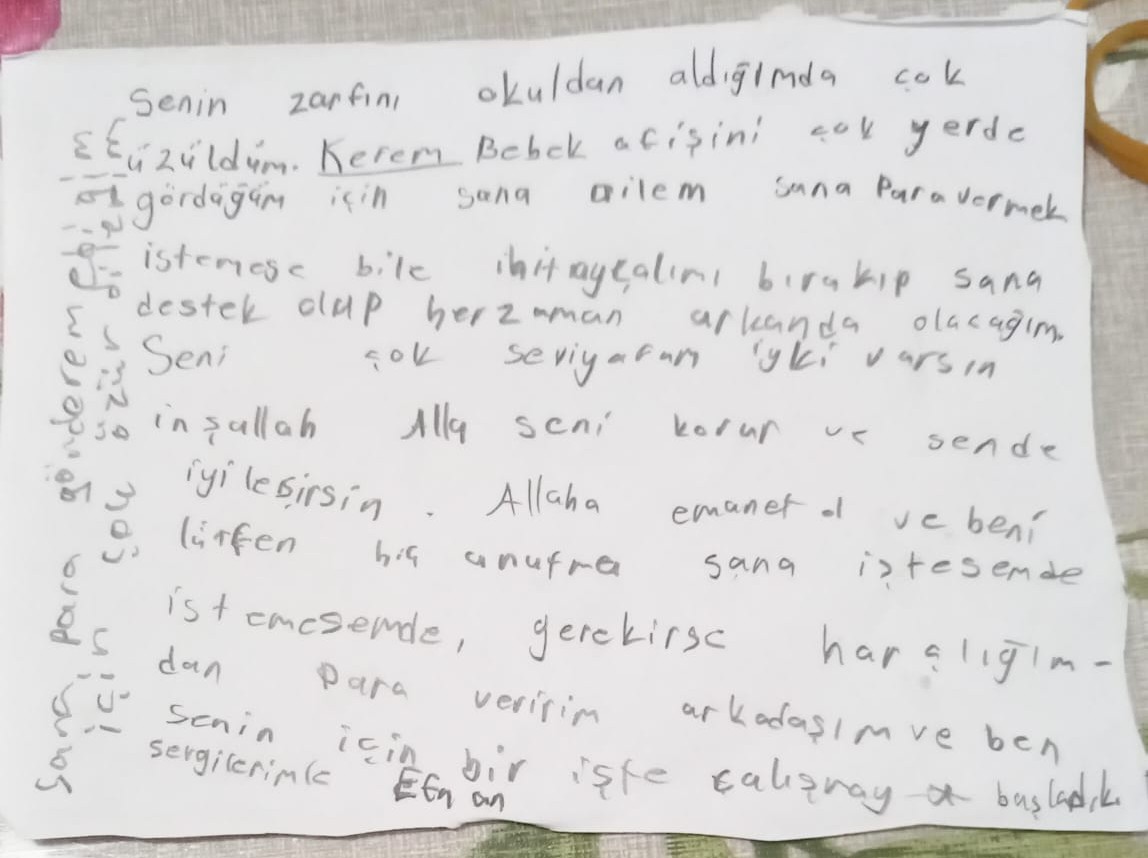 Senin zarfını okuldan aldığımda çok
üzüldüm. Kerem Bebek afişini çok yerde
gördüğüm için sana ailem sana Para vermek
istemese bile ihitayçalımı bırakıp sana
destek olup herzaman arkanda olacağım.
Seni çok seviyaram iyki varsın
inşallah Alla seni korur ve sende
iyileşirsin. Allaha emanet ol ve beni
lütfen hiç unutma sana iştesemde
istemesemde, gerekirse harçlığım-
dan para veririm arkadaşım ve ben
Senin için bir işte çalışmay a başladık
sergilerimle
Sana para gönderem
için çok